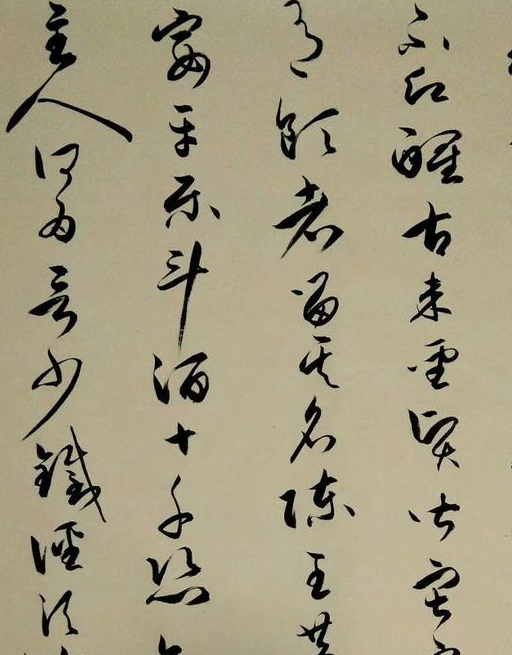 不醒古来聖賢皆寂
有飲者留其名陳王昔
宴平樂斗酒十千恣
主人何為言少錢徑須